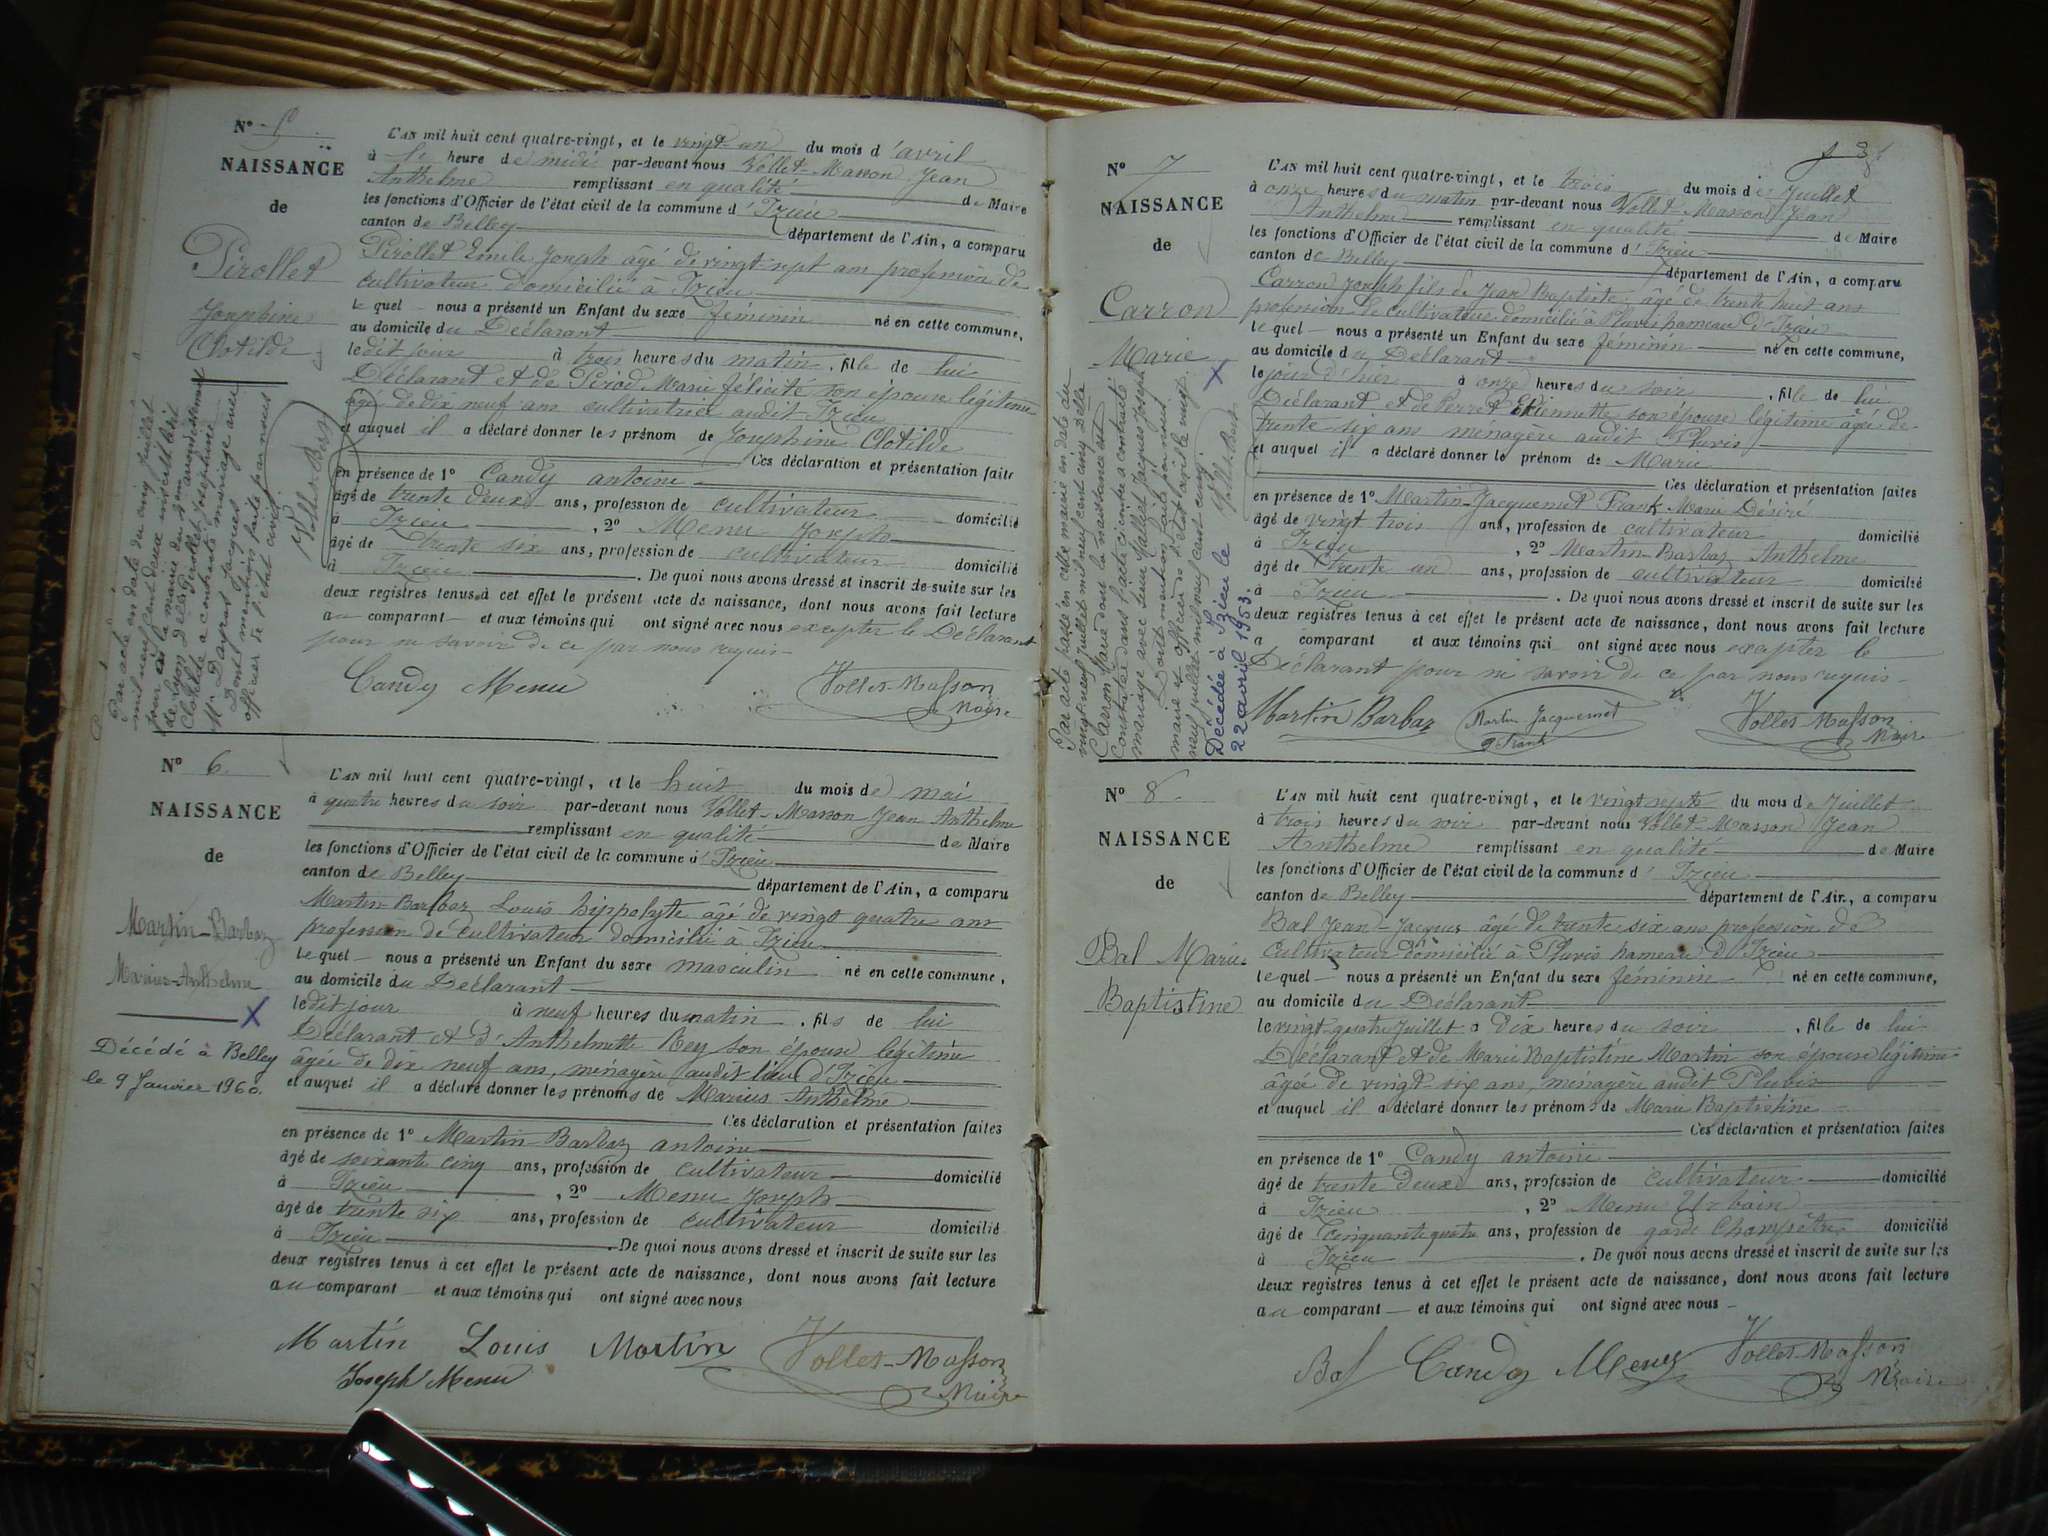 N° 5
NAISSANCE
de
Pirollet
Josephine
Clotilde
L'AN mil huit cent quatre-vingt, et le vingt-un du mois d'avril
à heure de midi par-devant nous Vollet-Masson Jean
Anthelme remplissant en qualité de Maire
les fonctions d'Officier de l'état civil de la commune d'Izieu
canton de Belley département de l'Ain, a comparu
Pirollet Emile Joseph âgé de vingt-sept ans profession de
cultivateur domicilié à Izieu
lequel nous a présenté un Enfant du sexe féminin né en cette commune,
au domicile du Déclarant
ledit jour à trois heures du matin, fille de lui
Déclarant et de Marie félicité son épouse légitime
âgé de dix neuf ans cultivatrice audit Izieu
et auquel il a déclaré donner les prénom de Josephine Clotilde
Ces déclaration et présentation faite
en présence de 1° Candy antoine
âgé de trente deux ans, profession de cultivateur domicilié
à Izieu, 2° Menu Joseph
âgé de trente six ans, profession de cultivateur domicilié
à Izieu. De quoi nous avons dressé et inscrit de suite sur les
deux registres tenus à cet effet le présent acte de naissance, dont nous avons fait lecture
au comparant et aux témoins qui ont signé avec nous excepter le Déclarant
pour ne savoir de ce par nous requis
Candy Menu Vollet-Masson
Maire
Par acte en date du cinq juillet
mil neuf cent deux inscrit
pour la mairie du
de Lyon delle Pirollet Josephine
Clotilde a contracté mariage avec
Mr Jacques
Dont mention faite par nous
officier de l'état civil
N° 6
NAISSANCE
de
Martin-Barbaz
Marius-Anthelme
X
Décédé à Belley
le 9 Janvier 1960.
L'AN mil huit cent quatre-vingt, et le huit du mois de mai
à quatre heures du soir par-devant nous Vollet-Masson Jean Anthelme
remplissant en qualité de Maire
les fonctions d'Officier de l'état civil de la commune d'Izieu
canton de Belley département de l'Ain, a comparu
Martin-Barbaz Louis hippolyte âgé de vingt quatre ans
profession de cultivateur domicilié à Izieu
lequel nous a présenté un Enfant du sexe masculin né en cette commune,
au domicile du Déclarant
ledit jour à neuf heures du matin, fils de lui
Déclarant et d'Anthelmette Rey son épouse légitime
âgée de dix neuf ans, ménagère audit lieu d'Izieu
et auquel il a déclaré donner les prénoms de Marius Anthelme
Ces déclaration et présentation faites
en présence de 1° Martin Barbaz antoine
âgé de soixante cinq ans, profession de cultivateur domicilié
à Izieu, 2° Menu Joseph
âgé de trente six ans, profession de cultivateur domicilié
à Izieu. De quoi nous avons dressé et inscrit de suite sur les
deux registres tenus à cet effet le présent acte de naissance, dont nous avons fait lecture
au comparant et aux témoins qui ont signé avec nous
Martin Louis Martin Vollet-Masson
Joseph Menu Maire
N° 7
NAISSANCE
de
Carron
Marie
X
L'AN mil huit cent quatre-vingt, et le trois du mois de Juillet
à onze heures du matin par-devant nous Vollet-Masson Jean
Anthelme remplissant en qualité de Maire
les fonctions d'Officier de l'état civil de la commune d'Izieu
canton de Belley département de l'Ain, a comparu
Carron Joseph fils de Jean Baptiste, âgé de trente huit ans
profession de cultivateur domicilié à Pluvis hameau d'Izieu
lequel nous a présenté un Enfant du sexe féminin né en cette commune,
au domicile du Déclarant
le jour d'hier à onze heures du soir, fille de lui
Déclarant et de Perret Etiennette son épouse légitime âgée de
trente six ans ménagère audit Pluvis
et auquel il a déclaré donner le prénom de Marie
Ces déclaration et présentation faites
en présence de 1° Martin-Jacquemet Frank Marie Désiré
âgé de vingt trois ans, profession de cultivateur domicilié
à Izieu, 2° Martin-Barbaz Anthelme
âgé de Trente un ans, profession de cultivateur domicilié
à Izieu. De quoi nous avons dressé et inscrit de suite sur les
deux registres tenus à cet effet le présent acte de naissance, dont nous avons fait lecture
a comparant et aux témoins qui ont signé avec nous excepter le
Déclarant pour ne savoir de ce par nous requis
Martin Barbaz Martin Jacquemet Frank Vollet-Masson
Maire
Par acte passé en cette mairie en date du
vingt neuf juillet mil neuf cent cinq Delle
Carron Marie dont la naissance est
constatée dans l'acte ci contre a contracté
mariage avec Sieur Jacques Joseph
Dont mention faite par nous
maire et officier de l'état civil le vingt
neuf juillet mil neuf cent cinq.
Décédée à Izieu le
22 avril 1953.
N° 8
NAISSANCE
de
Bal Marie
Baptistine
L'AN mil huit cent quatre-vingt, et le vingt septe du mois de Juillet
à trois heures du soir par-devant nous Vollet-Masson Jean
Anthelme remplissant en qualité de Maire
les fonctions d'Officier de l'état civil de la commune d'Izieu
canton de Belley département de l'Ain, a comparu
Bal Jean-Jacques âgé de trente six ans profession de
Cultivateur domicilié à Pluvis hameau d'Izieu
lequel nous a présenté un Enfant du sexe féminin né en cette commune,
au domicile du Déclarant
le vingt quatre Juillet à Dix heures du soir, fille de lui
Déclarant et de Marie Baptistine Martin son épouse légitime
âgée de vingt six ans, ménagère audit Pluvis
et auquel il a déclaré donner les prénoms de Marie Baptistine
Ces déclaration et présentation faites
en présence de 1° Candy antoine
âgé de trente deux ans, profession de cultivateur domicilié
à Izieu, 2° Menu Urbain
âgé de Cinquante quatre ans, profession de garde Champêtre domicilié
à Izieu. De quoi nous avons dressé et inscrit de suite sur les
deux registres tenus à cet effet le présent acte de naissance, dont nous avons fait lecture
au comparant et aux témoins qui ont signé avec nous
Bal Candy Menu Vollet-Masson
Maire